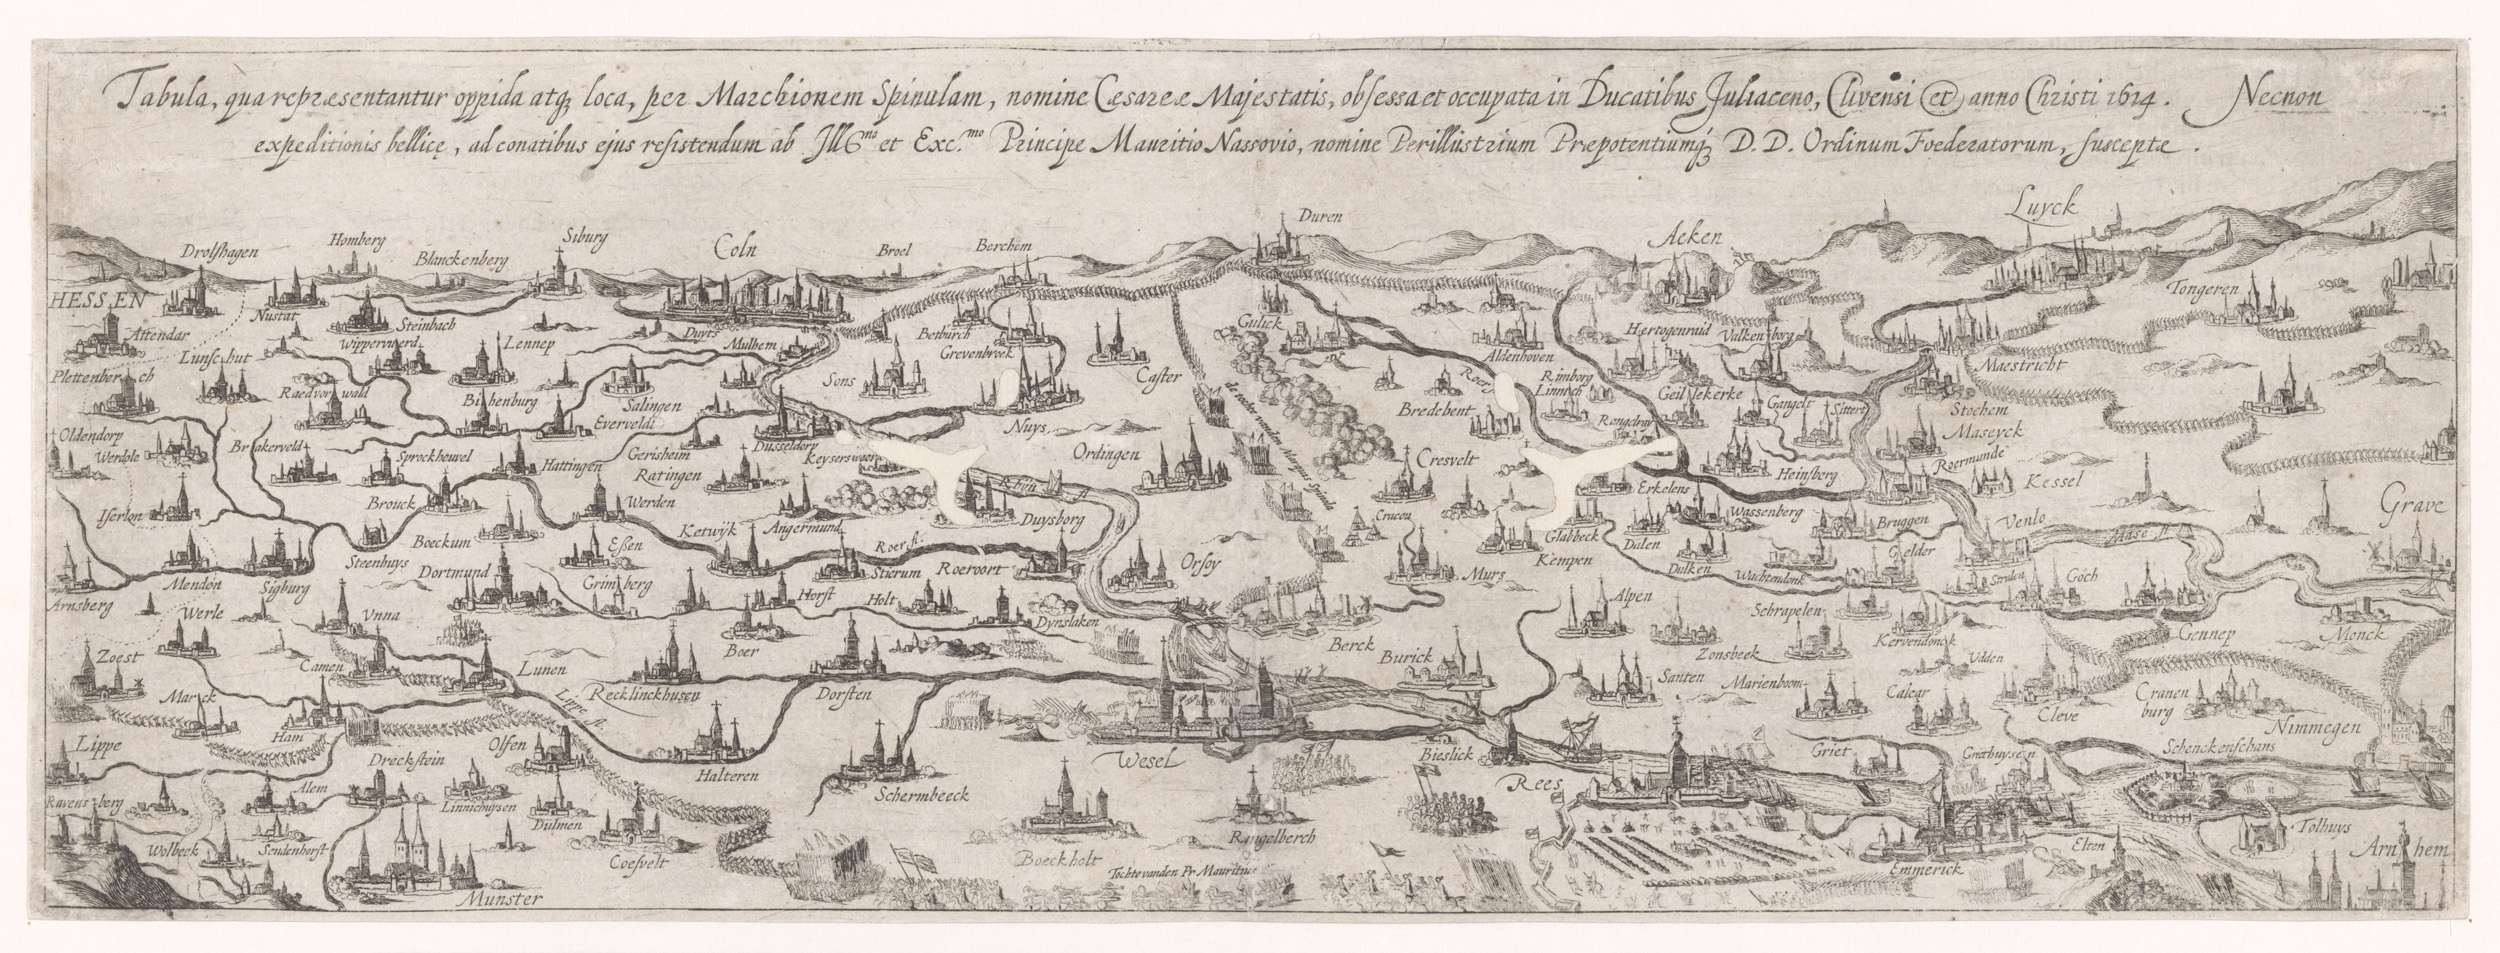 Tabula, qua repræsentantur oppida atq; loca, per Marchionem Spinulam, nomine Cæsareæ Majestatis, obsessa et occupata in Ducatibus Juliaceno, Clivensi et anno Christi 1614. Necnon
expeditionis bellicę, ad conatibus ejus resistendum ab Ill.mo et Exc.mo Principe Mauritio Nassovio, nomine Perillustrium Præpotentiumq; D. D. Ordinum Foederatorum, susceptæ.
Luyck
Duren
Drolshagen
Homberg
Blanckenberg
Siburg
Coln
Broel
Berchem
Aeken
HESSEN
Nustat
Steinbach
Duyts
Betburch
Gulick
Hertogenraid
Valkenborg
Tongeren
Attendar
Lunschut
Wipperweerd
Lennep
Mulhem
Grevenbroek
Aldenhoven
Maestricht
Plettenberch
Raedvorwald
Bihenburg
Salingen
Sons
Caster
Roer
Rimborg
Linnich
Geilekerke
Gangelt
Sittert
Stochem
Oldendorp
Werdole
Brakerveld
Sprockheuvel
Hattingen
Everveldt
Gerisheim
Ratingen
Dusseldorp
Keyserswaer
Nuys
Ordingen
Bredebent
Maseyck
Roermunde
Iserlon
Brouck
Werden
Angermund
Rhijn fl.
Duysborg
de tocht vanden Marquis Spinola
Cresvelt
Cracou
Erkelens
Heinsberg
Wassenberg
Bruggen
Kessel
Grave
Mendon
Sigburg
Steenhuys
Boeckum
Essen
Ketwijk
Roer fl.
Stierum
Roeroort
Orsoy
Murs
Kempen
Glabbeck
Dalen
Dulken
Wachtendonk
Gelder
Venlo
Mase fl.
Arnsberg
Werle
Unna
Dortmund
Grimberg
Horst
Holt
Dynslaken
Alpen
Sebrapelen
Goch
Gennep
Monck
Zoest
Camen
Lunen
Boer
Berck
Burick
Zonsbeek
Kervendonck
Udden
Marck
Lippe fl.
Recklinckhusen
Dorsten
Santen
Marienboom
Calcar
Cleve
Cranenburg
Nimmegen
Ham
Lippe
Dreckstein
Olfen
Halteren
Wesel
Bieslick
Griet
Schenckenschans
Ravensberg
Alem
Linnichuysen
Dulmen
Schermbeeck
Rees
Wolbeck
Sendenhorst
Coesvelt
Boeckholt
Ringelberch
Tolhuys
Munster
Tochte vanden Pr Mauritius
Emmerick
Elten
Arnhem